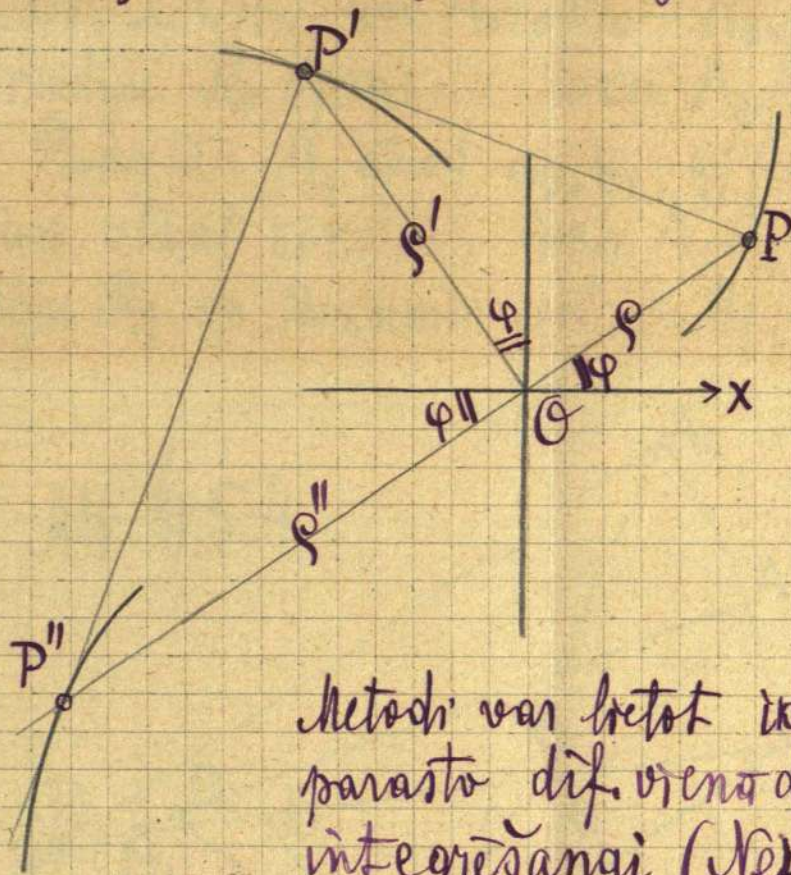 P'
P
ρ'
φ
ρ
φ
x
φ
O
ρ"
P"
Metodi var lietot
parasto dif. vienā
integrēšanai